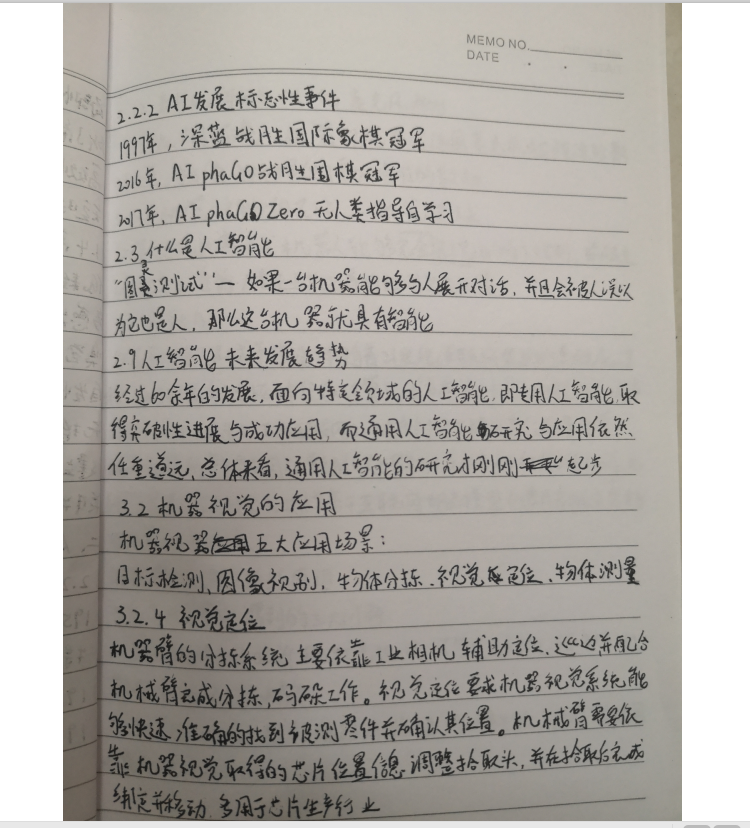 MEMO NO.
DATE
2.2.2 AI发展标志性事件
1997年，深蓝战胜国际象棋冠军
2016年，AI phaGO战胜围棋冠军
2017年，AI phaGO Zero 无人类指导自学习
2.3 什么是人工智能
“图灵测试”— 如果一台机器能够与人展开对话，并且会被人误以
为它也是人，那么这台机器就具有智能
2.9人工智能未来发展趋势
经过60余年的发展，面向特定领域的人工智能，即专用人工智能，取
得突破性进展与成功应用，而通用人工智能研究与应用依然
任重道远，总体来看，通用人工智能的研究才刚刚起步
3.2 机器视觉的应用
机器视器五大应用场景：
目标检测、图像视别，物体分拣、视觉定位、物体测量
3.2.4 视觉定位
机器臂的分拣系统主要依靠工业相机辅助定位，并配合
机械臂完成分拣，码垛工作。视觉定位要求机器视觉系统能
够快速准确的找到被测零件并确认其位置。机械臂需要依
靠机器视觉取得的芯片位置信息调整拾取头，并在拾取后完成
绑定并移动，多用于芯片生产行业